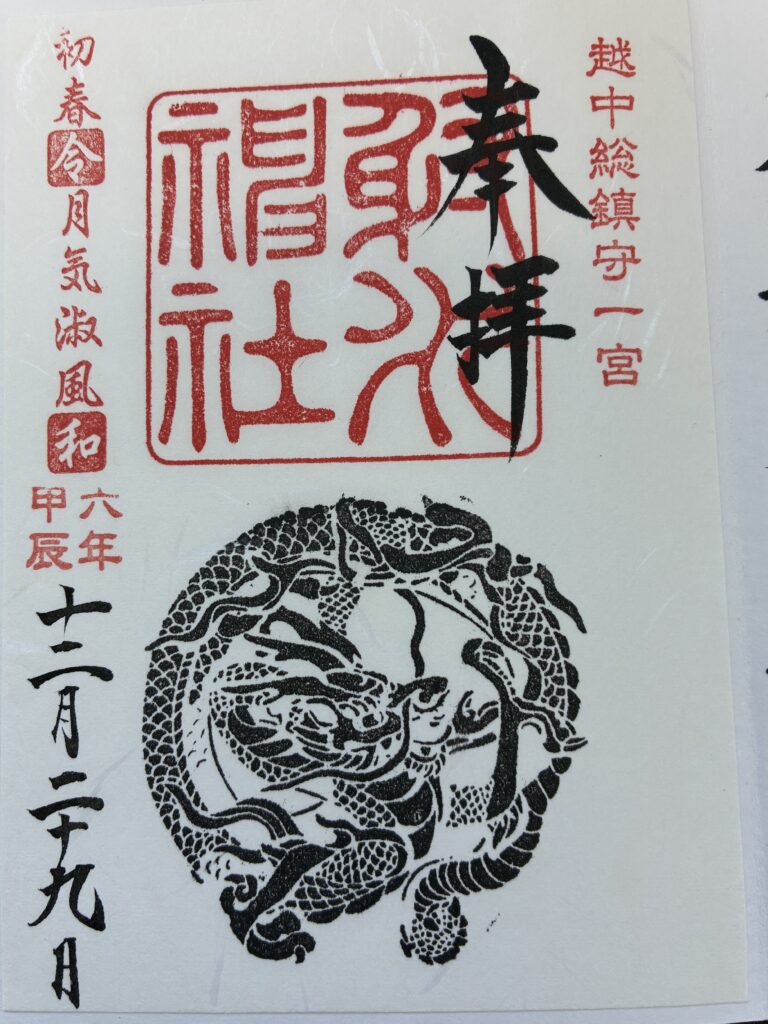 越中総鎮守一宮
奉拝
射水
神社
初春令月気淑風和
六年
甲辰
十二月二十九日